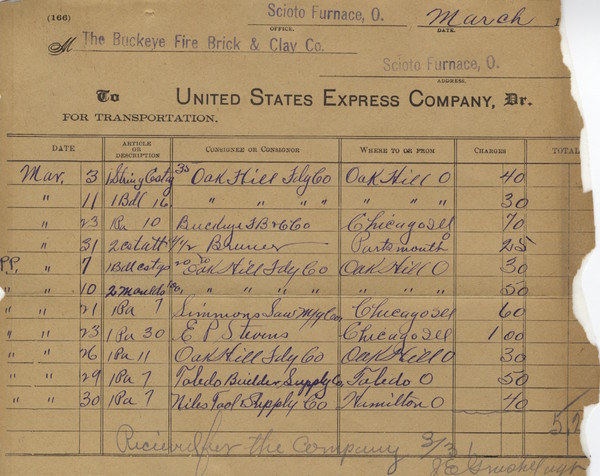 (166) Scioto Furnace, O. March 1
OFFICE. DATE.
M The Buckeye Fire Brick & Clay Co.
Scioto Furnace, O.
ADDRESS.
To UNITED STATES EXPRESS COMPANY, Dr.
FOR TRANSPORTATION.
DATE ARTICLE OR DESCRIPTION CONSIGNEE OR CONSIGNOR WHERE TO OR FROM CHARGES TOTAL
Mar. 3 1 String Castg 35 Oak Hill Fdy Co Oak Hill O 40
" 11 1 Bdl 16 " " " " " " 30
" 23 1 Pa 10 Buckeye F B & C Co Chicago Ill 70
" 31 Bruner Portsmouth 25
P.P. " 7 1 Bdl cstgs 20 Oak Hill Fdy Co Oak Hill O 30
" " 10 2 moulds 100 " " " " " " 50
" " 21 1 Pa 7 Simmons Saw Mfg Co Chicago Ill 60
" " 23 1 Pa 30 E P Stevens Chicago Ill 1 00
" " 26 1 Pa 11 Oak Hill Fdy Co Oak Hill O 30
" " 29 1 Pa 7 Toledo Builders Supply Co Toledo O 50
" " 30 1 Pa 7 Niles Tool & Supply Co Hamilton O 40
5,2
Recieved for the Company 3/31